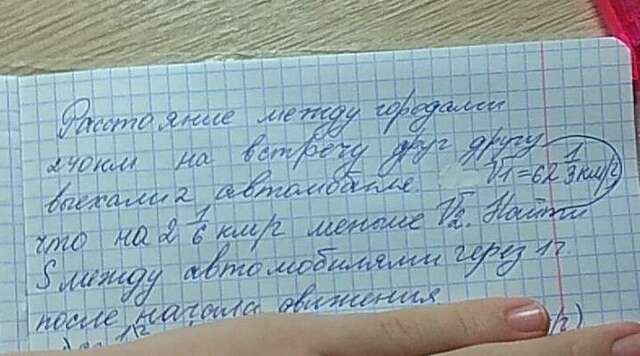 Расстояние между городами
240км на встречу друг другу
выехали 2 автомобиля. V1=62 1/3 км/г
что на 2 1/6 км/г меньше V2. Найти
S между автомобилями через 1г.
после начала движения